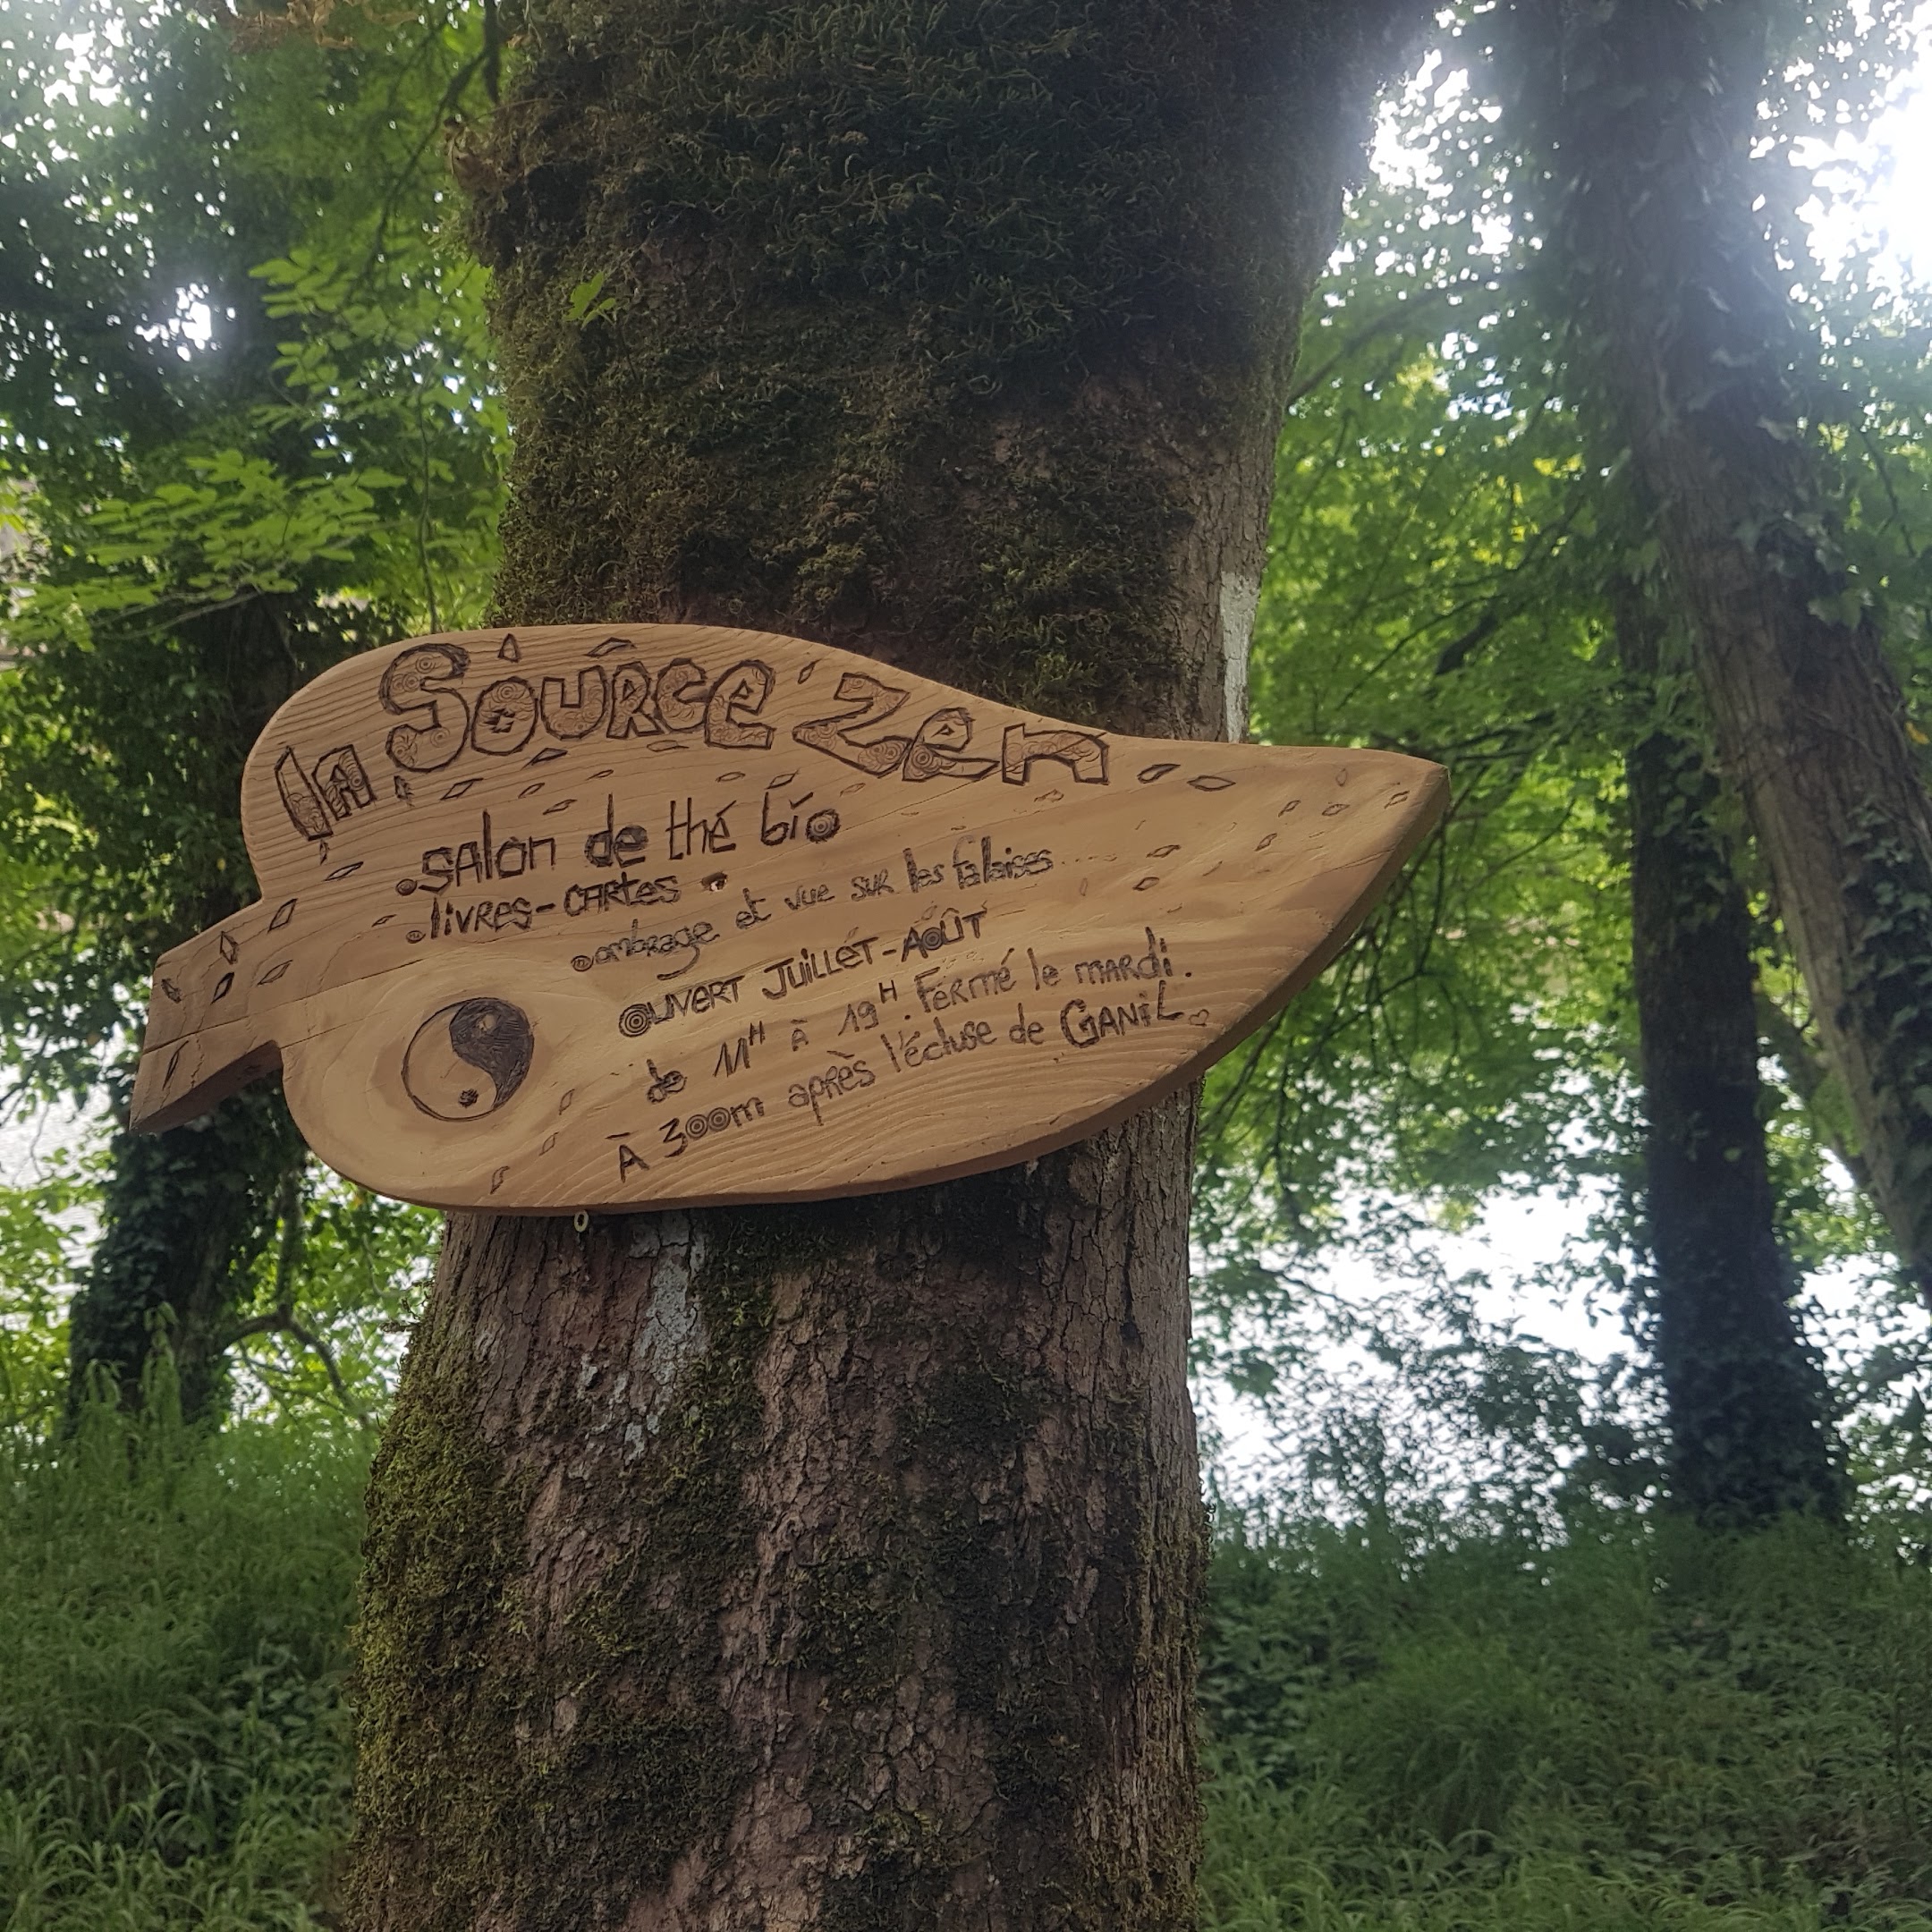 la Source Zen
.salon de thé bio
.livres-cartes
.ombrage et vue sur les falaises....
OUVERT JUILLET-AOÛT
de 11H à 19H. Fermé le mardi.
À 300m après l'écluse de GANiL